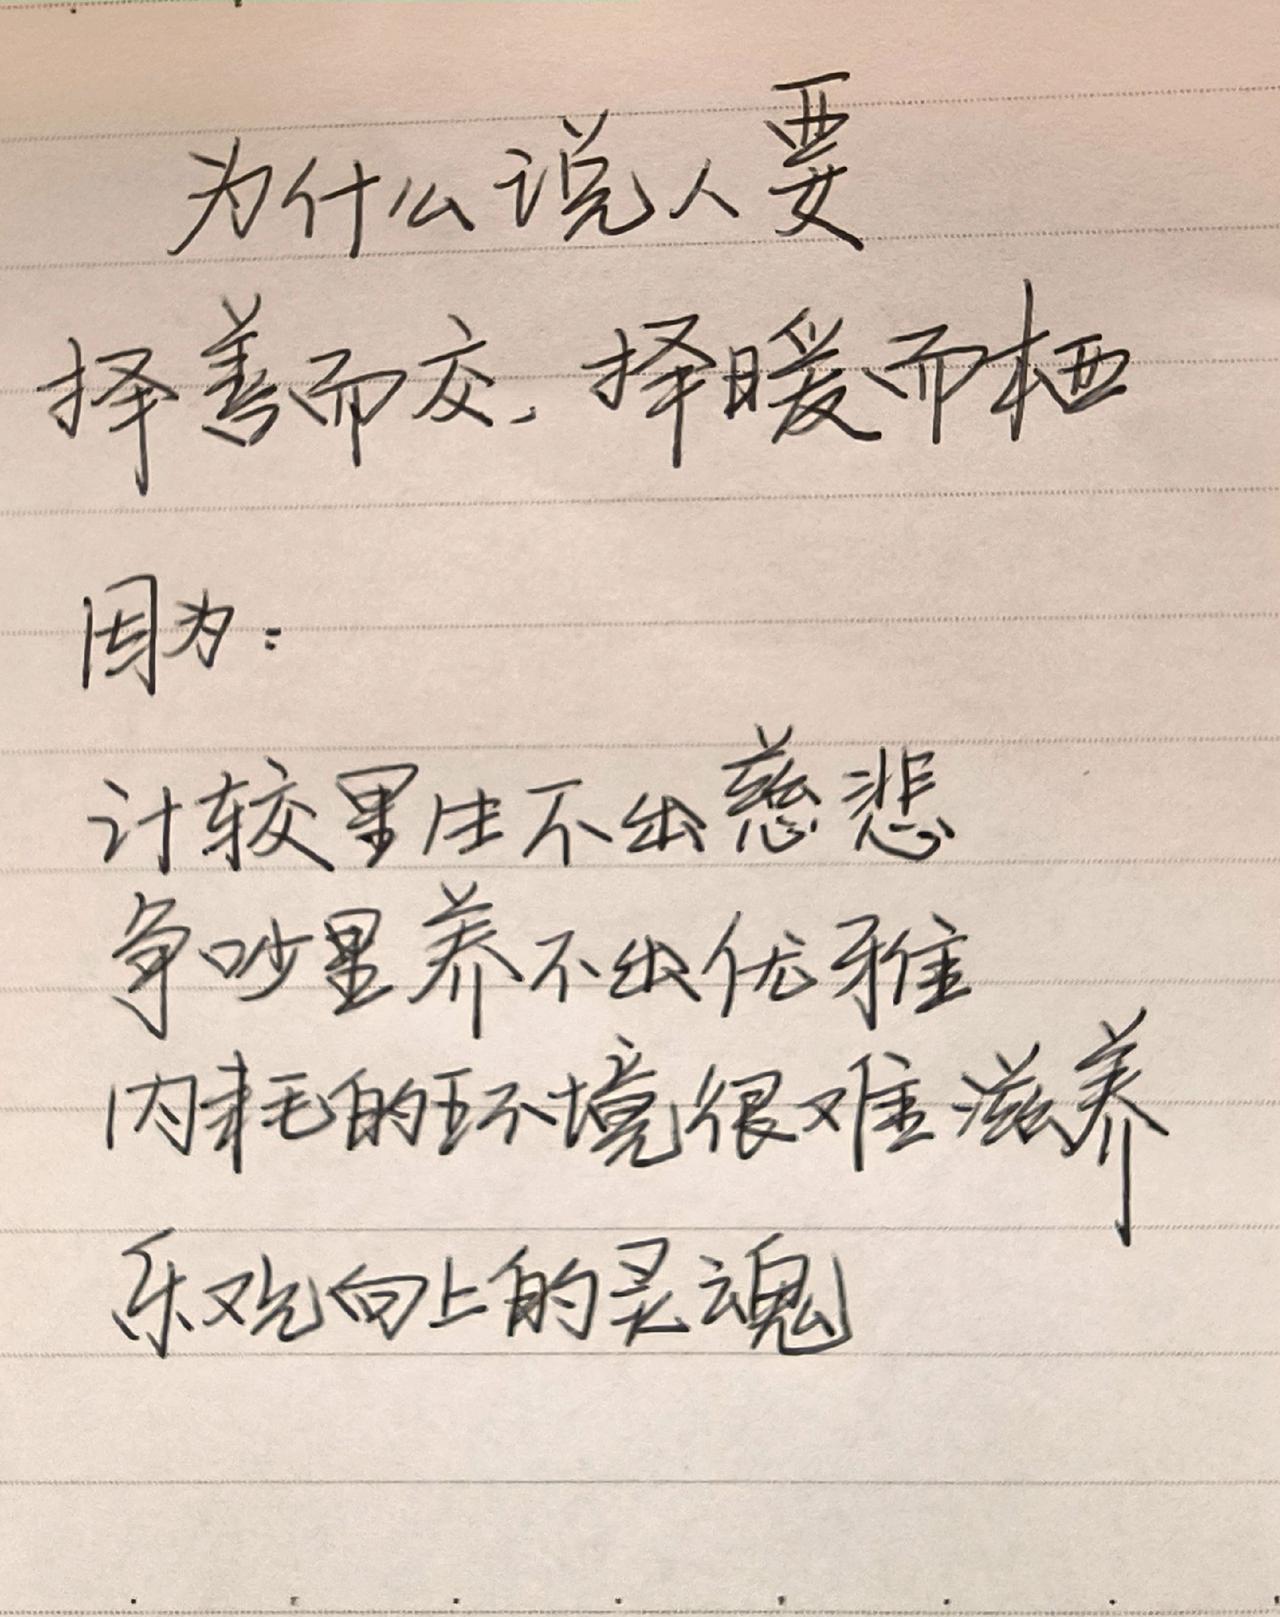 为什么说人要
择善而交，择暖而栖
因为：
计较里生不出慈悲
争吵里养不出优雅
内耗的环境很难滋养
乐观向上的灵魂